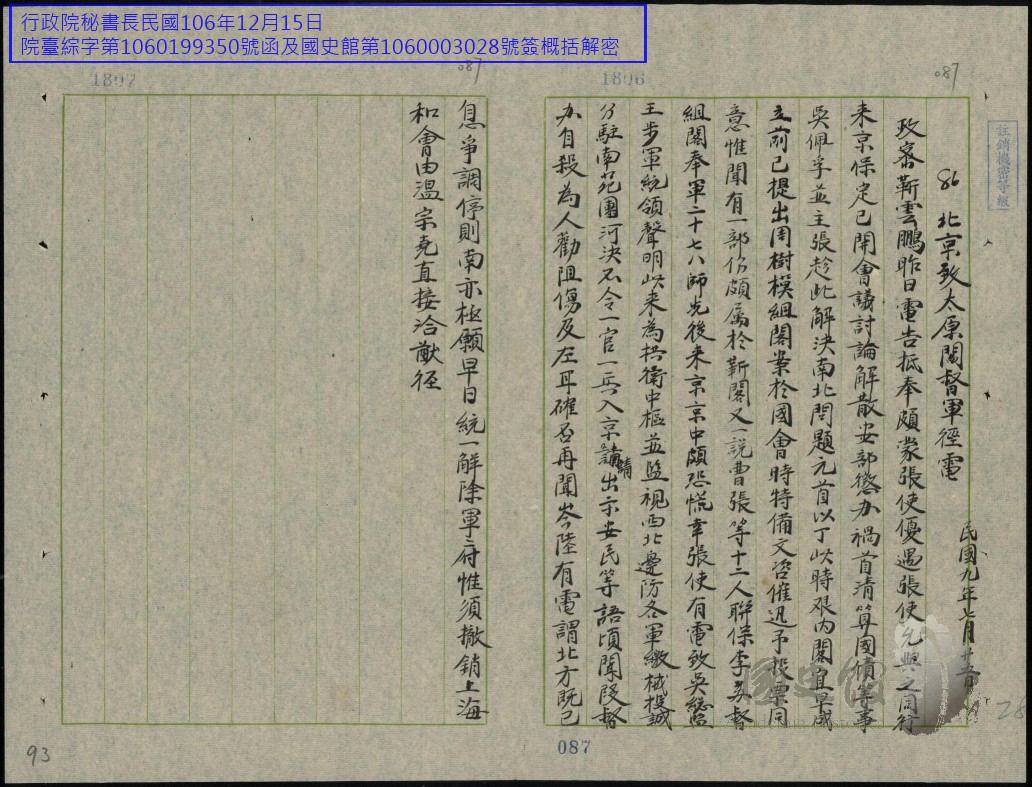 行政院秘書長民國106年12月15日
院臺綜字第1060199350號函及國史館第1060003028號簽概括解密
087
1896
註銷機密等級
86 北京致太原閻督軍徑電
民國九年七月廿五日
政密靳雲鵬昨日電告抵奉頗蒙張使優遇張使允與之同行
來京保定已開會議討論解散安部懲办禍首清算國債等事
吳佩孚並主張趁此解決南北問題元首以丁此時艱內閣宜早成
立前已提出周樹模組閣案於國會時特備文咨催迅予投票同
意惟聞有一部份頗屬於靳閣又一說曹張等十二人聯保李英督
組閣奉軍二十七八師先後來京京中頗恐慌幸張使有電致吳總監
王步軍統領聲明此來為拱衛中樞並監視西北邊防各軍繳械投誠
分駐南苑團河決不令一官一兵入京請出示安民等語頃聞段督
办自殺為人勸阻傷及左耳確否再聞岑陸有電謂北方既已
087
28
087
1897
息爭調停則南亦極願早日統一解除軍府惟須撤銷上海
和會由溫宗堯直接洽猷徑
93
國史館